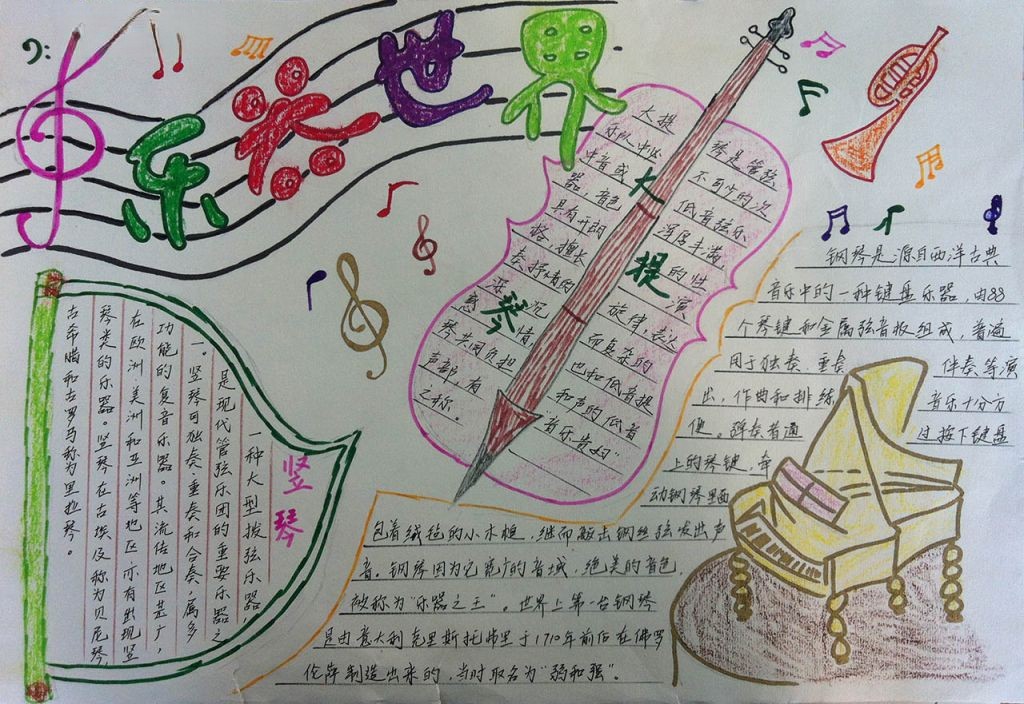 乐器世界
大提琴
大提琴是管弦
乐队中必不可少的次
中音或低音弦乐
器,音色浑厚丰满,
具有开朗的性
格,擅长演
奏抒情的旋律,表达
深沉而复杂的
感情,巴和低音提
琴共同负担和声的低音
声部,有"音乐贵妇"
之称。
钢琴是源自西洋古典
音乐中的一种键盘乐器,由88
个琴键和金属弦音板组成,普遍
用于独奏、重奏、伴奏等演
出,作曲和排练音乐十分方
便。弹奏者通过按下键盘
上的琴键,牵
动钢琴里面
包着绒毡的小木槌,继而敲击钢丝弦发出声
音。钢琴因为它宽广的音域,绝美的音色,
被称为"乐器之王"。世界上第一台钢琴
是由意大利克里斯托弗里于1710年前后在佛罗
伦萨制造出来的,当时取名为"弱和强"。
竖琴
一种大型拨弦乐器,
是现代管弦乐团的重要乐器之
一。竖琴可独奏、重奏和合奏,属多
功能的复音乐器。其流传地区甚广,
在欧洲、美洲和亚洲等地区亦有出现竖
琴类的乐器。竖琴在古埃及称为贝尼琴,
古希腊和古罗马称为里拉琴。